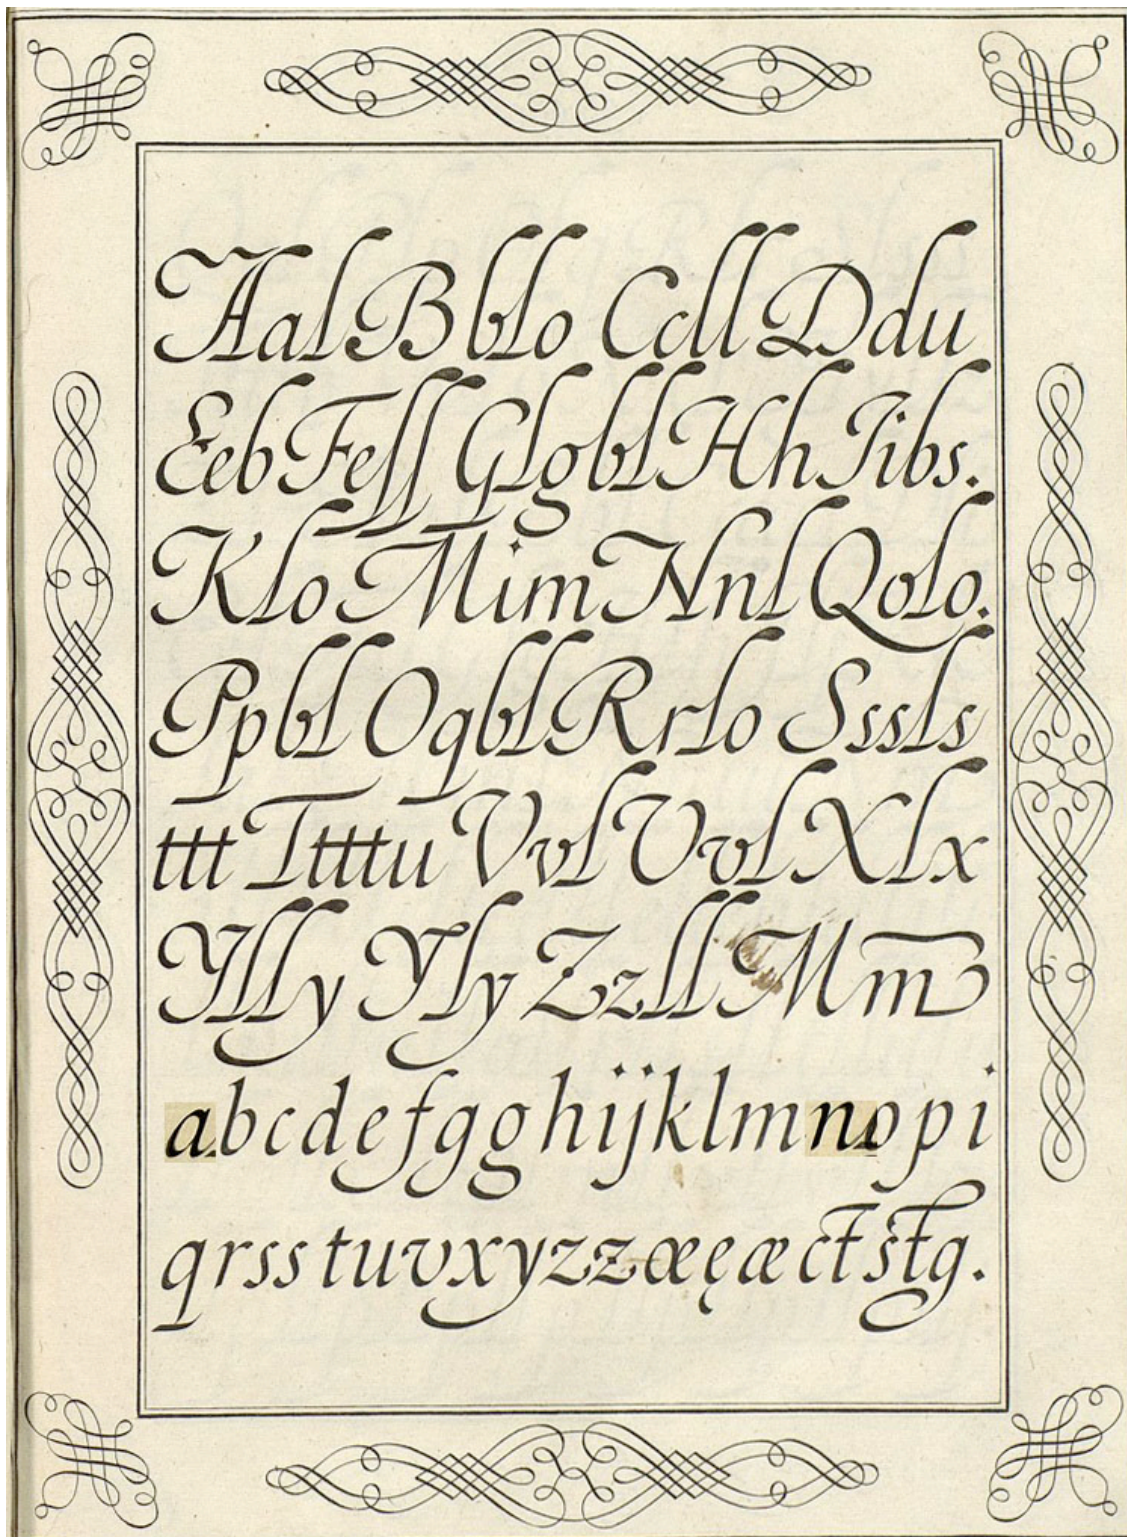 Aal Bblo Ccll Ddu
Eeb Feſſ Glgbl Hh Iibs.
Klo Mim Nnl Qolo.
Ppbl Oqbl Rrlo Sssls
ttt Ttttu Vvl Uvl Xlx
Ylly Yly Zzll Mm
abcdefgghijklmnopi
qrsstuvxyzzœęæctstg.